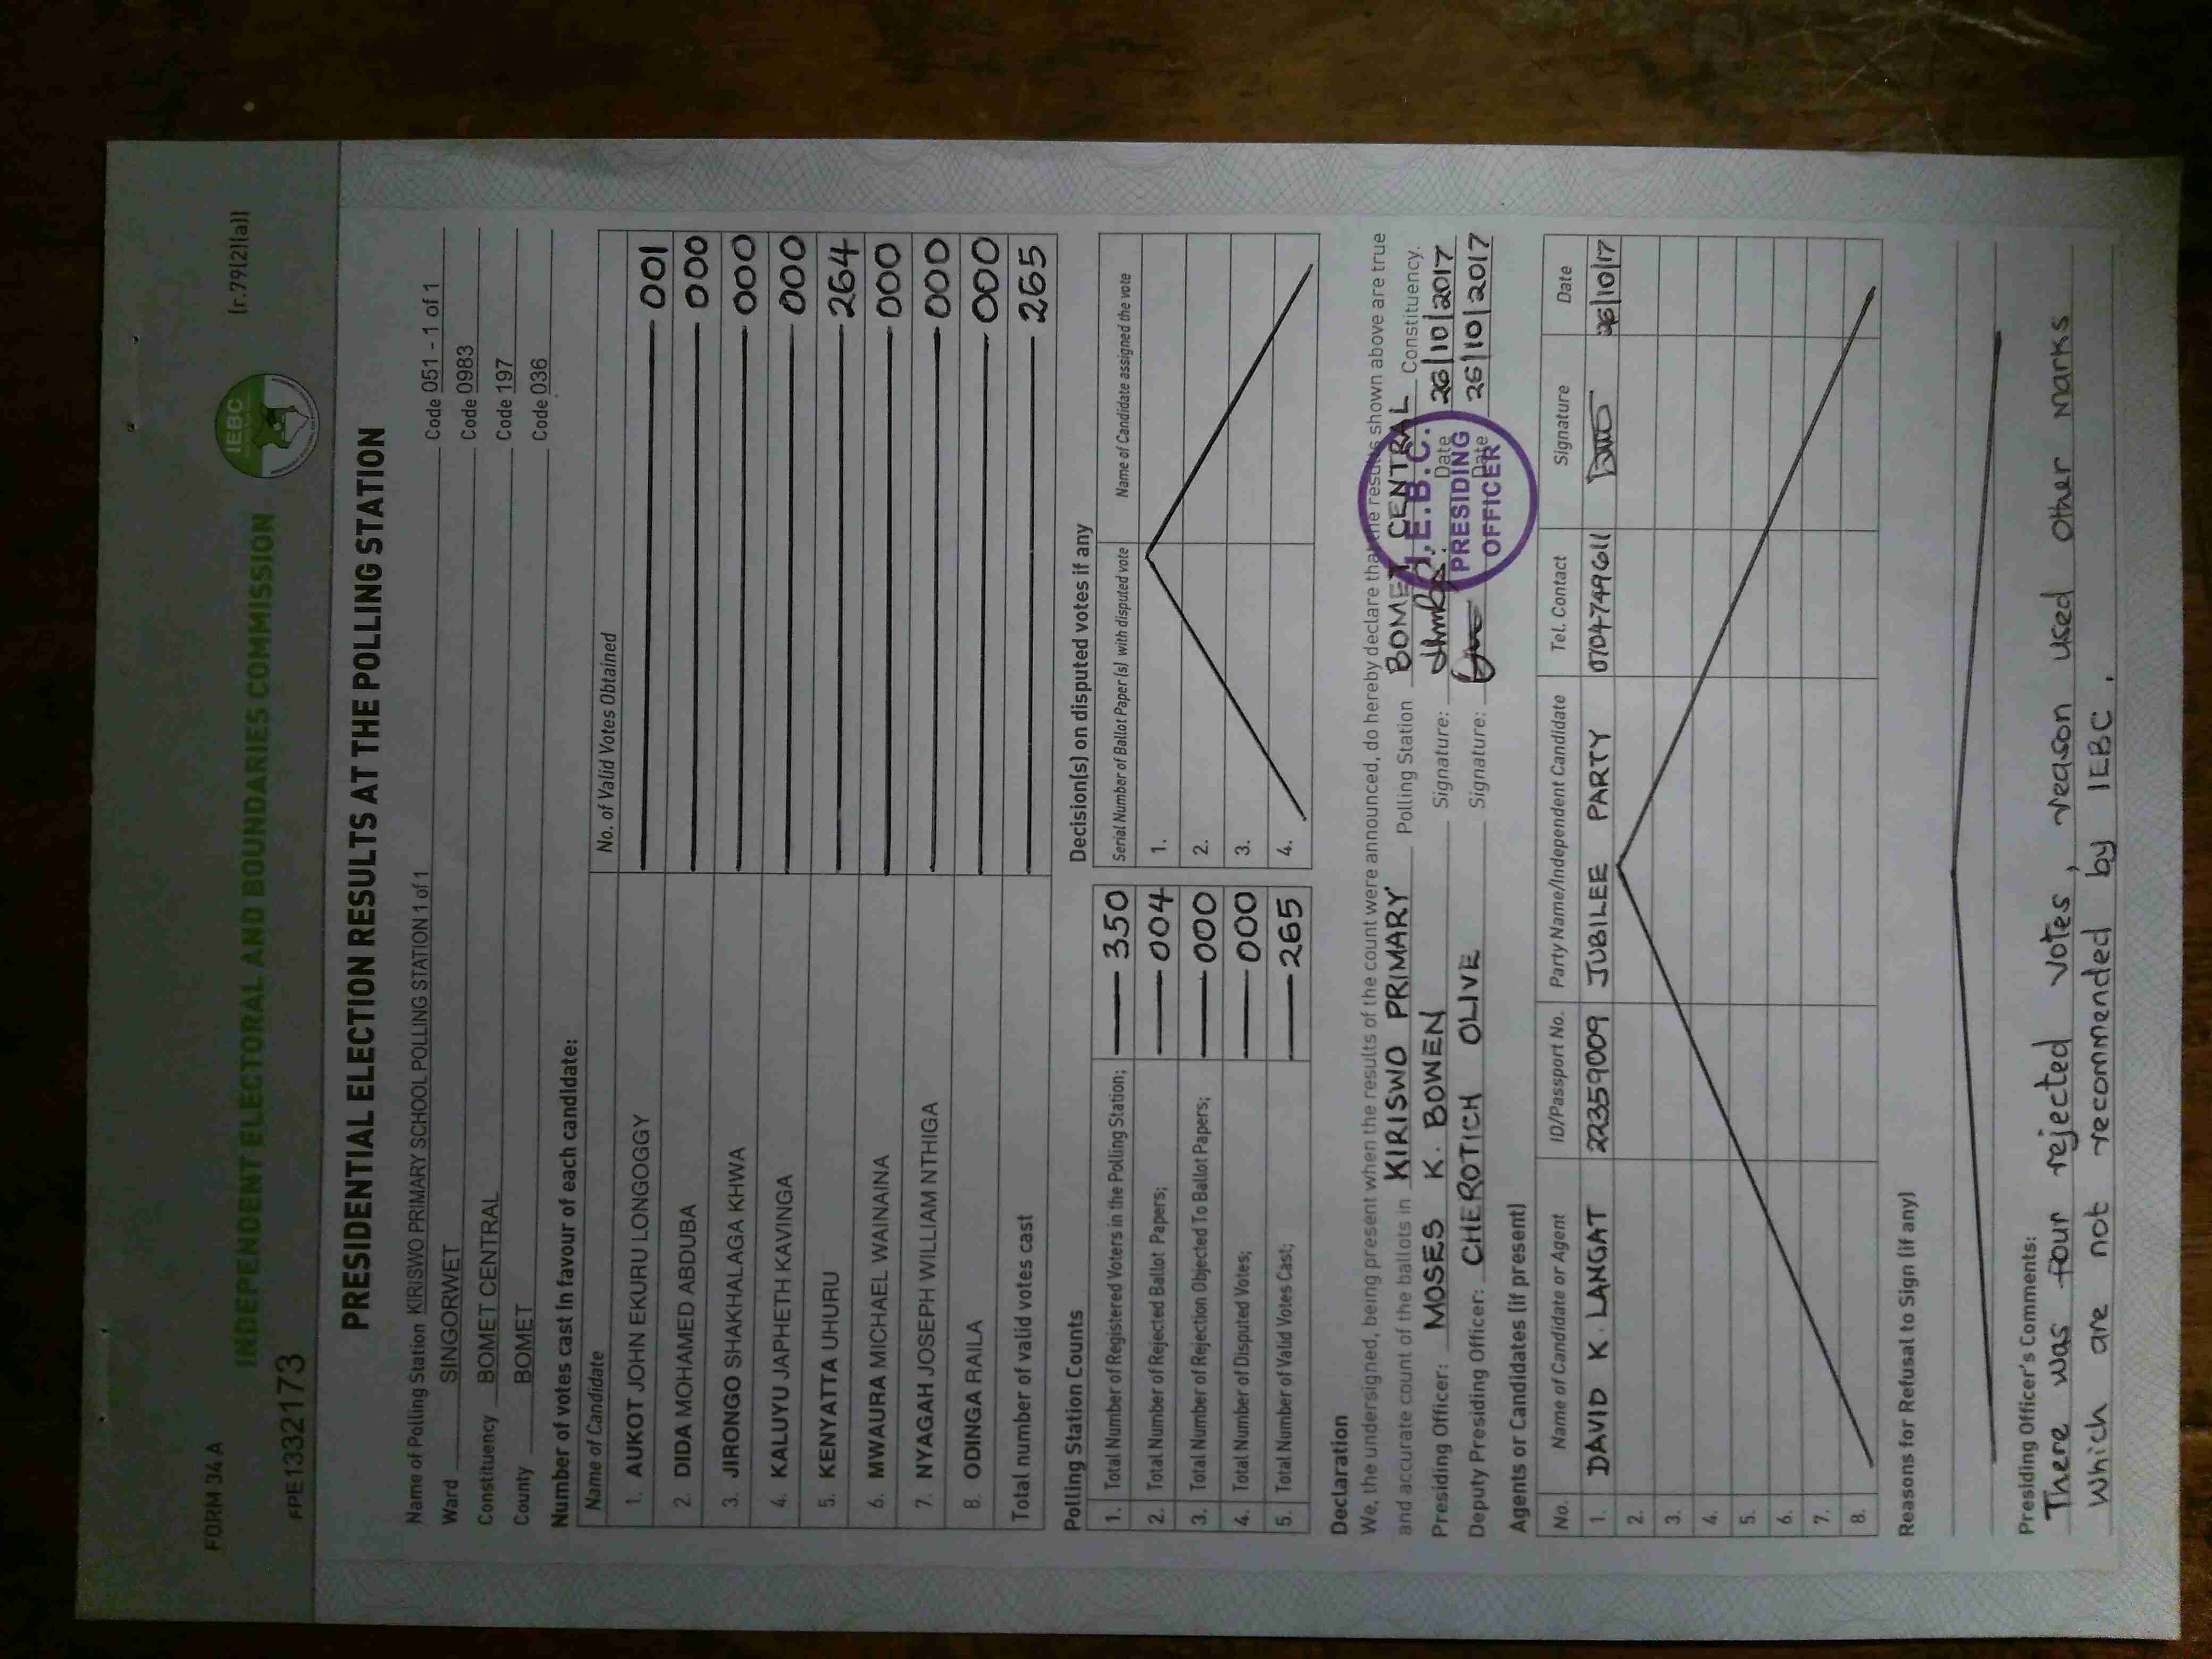 FORM 34A
[r.79(2)(a)]
INDEPENDENT ELECTORAL AND BOUNDARIES COMMISSION
IEBC
FPE1332173
PRESIDENTIAL ELECTION RESULTS AT THE POLLING STATION
Name of Polling Station KIRISWO PRIMARY SCHOOL POLLING STATION 1 of 1 Code 051 - 1 of 1
Ward SINGORWET Code 0983
Constituency BOMET CENTRAL Code 197
County BOMET Code 036
Number of votes cast in favour of each candidate:
Name of Candidate No. of Valid Votes Obtained
1. AUKOT JOHN EKURU LONGOGGY 001
2. DIDA MOHAMED ABDUBA 000
3. JIRONGO SHAKHALAGA KHWA 000
4. KALUYU JAPHETH KAVINGA 000
5. KENYATTA UHURU 264
6. MWAURA MICHAEL WAINAINA 000
7. NYAGAH JOSEPH WILLIAM NTHIGA 000
8. ODINGA RAILA 000
Total number of valid votes cast 265
Polling Station Counts
1. Total Number of Registered Voters in the Polling Station; 350
2. Total Number of Rejected Ballot Papers; 004
3. Total Number of Rejection Objected To Ballot Papers; 000
4. Total Number of Disputed Votes; 000
5. Total Number of Valid Votes Cast; 265
Decision(s) on disputed votes if any
Serial Number of Ballot Paper (s) with disputed vote Name of Candidate assigned the vote
1.
2.
3.
4.
Declaration
We, the undersigned, being present when the results of the count were announced, do hereby declare that the results shown above are true
and accurate count of the ballots in KIRISWO PRIMARY Polling Station BOMET CENTRAL Constituency.
Presiding Officer: MOSES K. BOWEN Signature: Date 26/10/2017
Deputy Presiding Officer: CHEROTICH OLIVE Signature: Date 26/10/2017
I.E.B.C.
PRESIDING
OFFICER
Agents or Candidates (if present)
No. Name of Candidate or Agent ID/Passport No. Party Name/Independent Candidate Tel. Contact Signature Date
1. DAVID K. LANGAT 22359009 JUBILEE PARTY 0704749611 26/10/17
2.
3.
4.
5.
6.
7.
8.
Reasons for Refusal to Sign (if any)
Presiding Officer's Comments:
There was four rejected votes, reason used other marks
which are not recommended by IEBC.